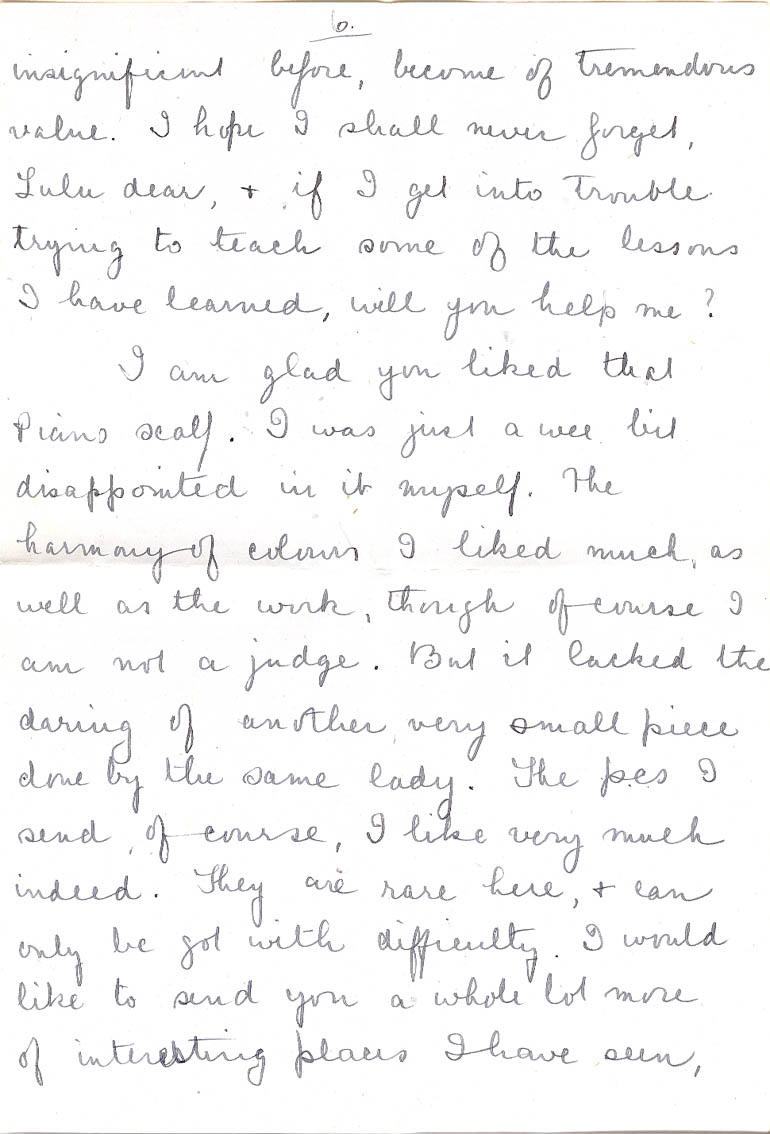 6.
insignificant before, become of tremendous
value. I hope I shall never forget,
Lulu dear, + if I get into trouble
trying to teach some of the lessons
I have learned, will you help me?
I am glad you liked that
Piano scalf. I was just a wee bit
disappointed in it myself. The
harmony of colours I liked much, as
well as the work, though of course I
am not a judge. But it lacked the
daring of another, very small piece
done by the same lady. The pcs I
send, of course, I like very much
indeed. They are rare here, + can
only be got with difficulty. I would
like to send you a whole lot more
of interesting places I have seen,